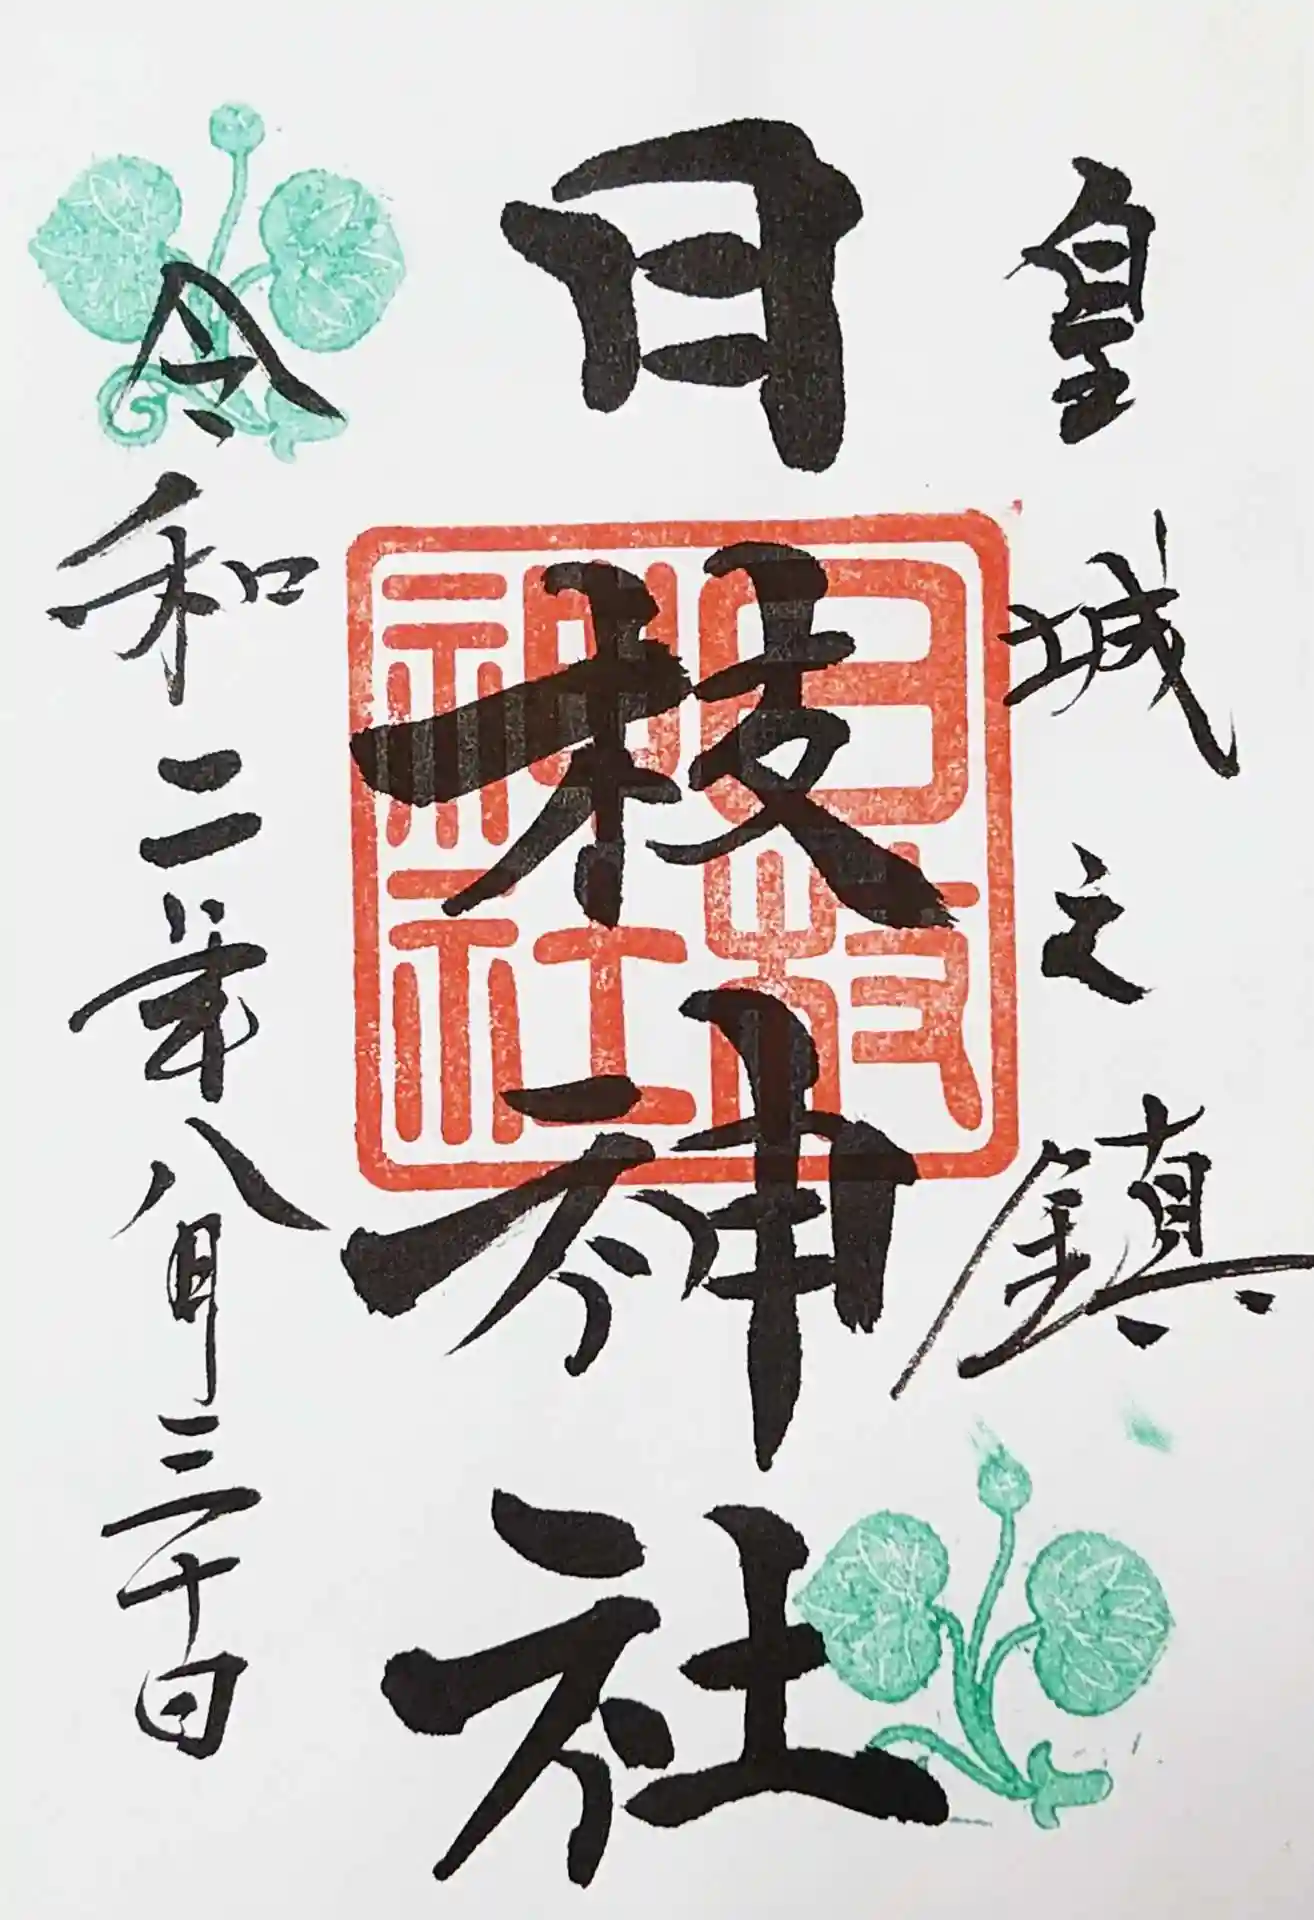 皇城之鎮
日枝神社
日枝神社
令和二年八月三十日